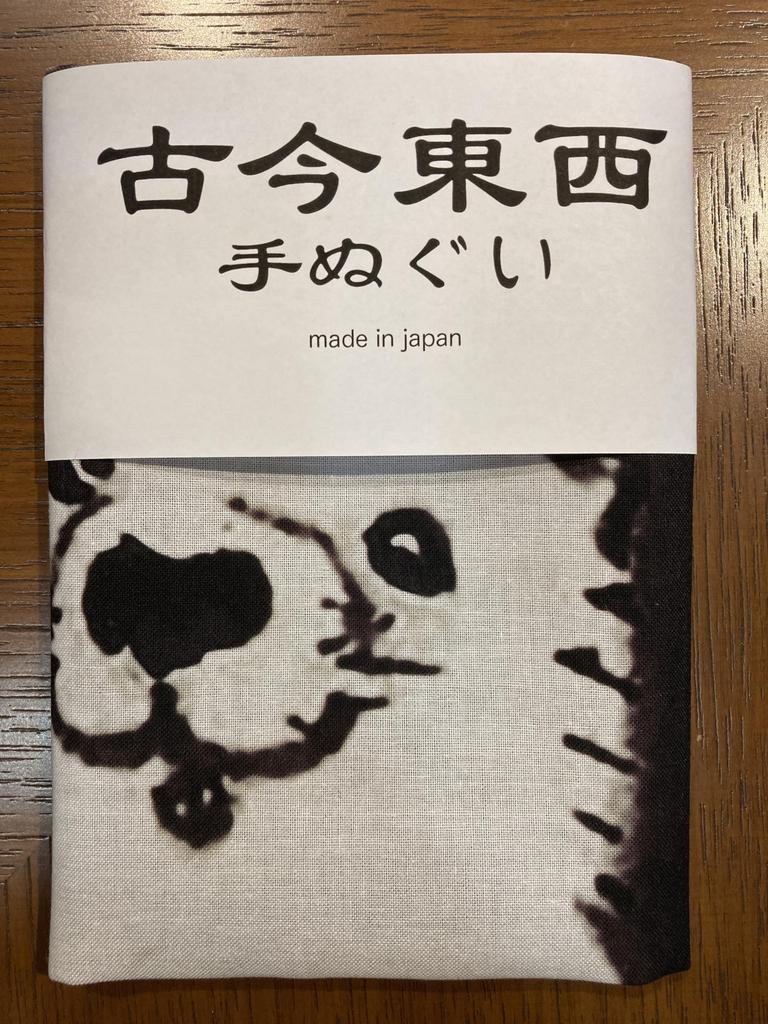 古今東西
手ぬぐい
made in japan